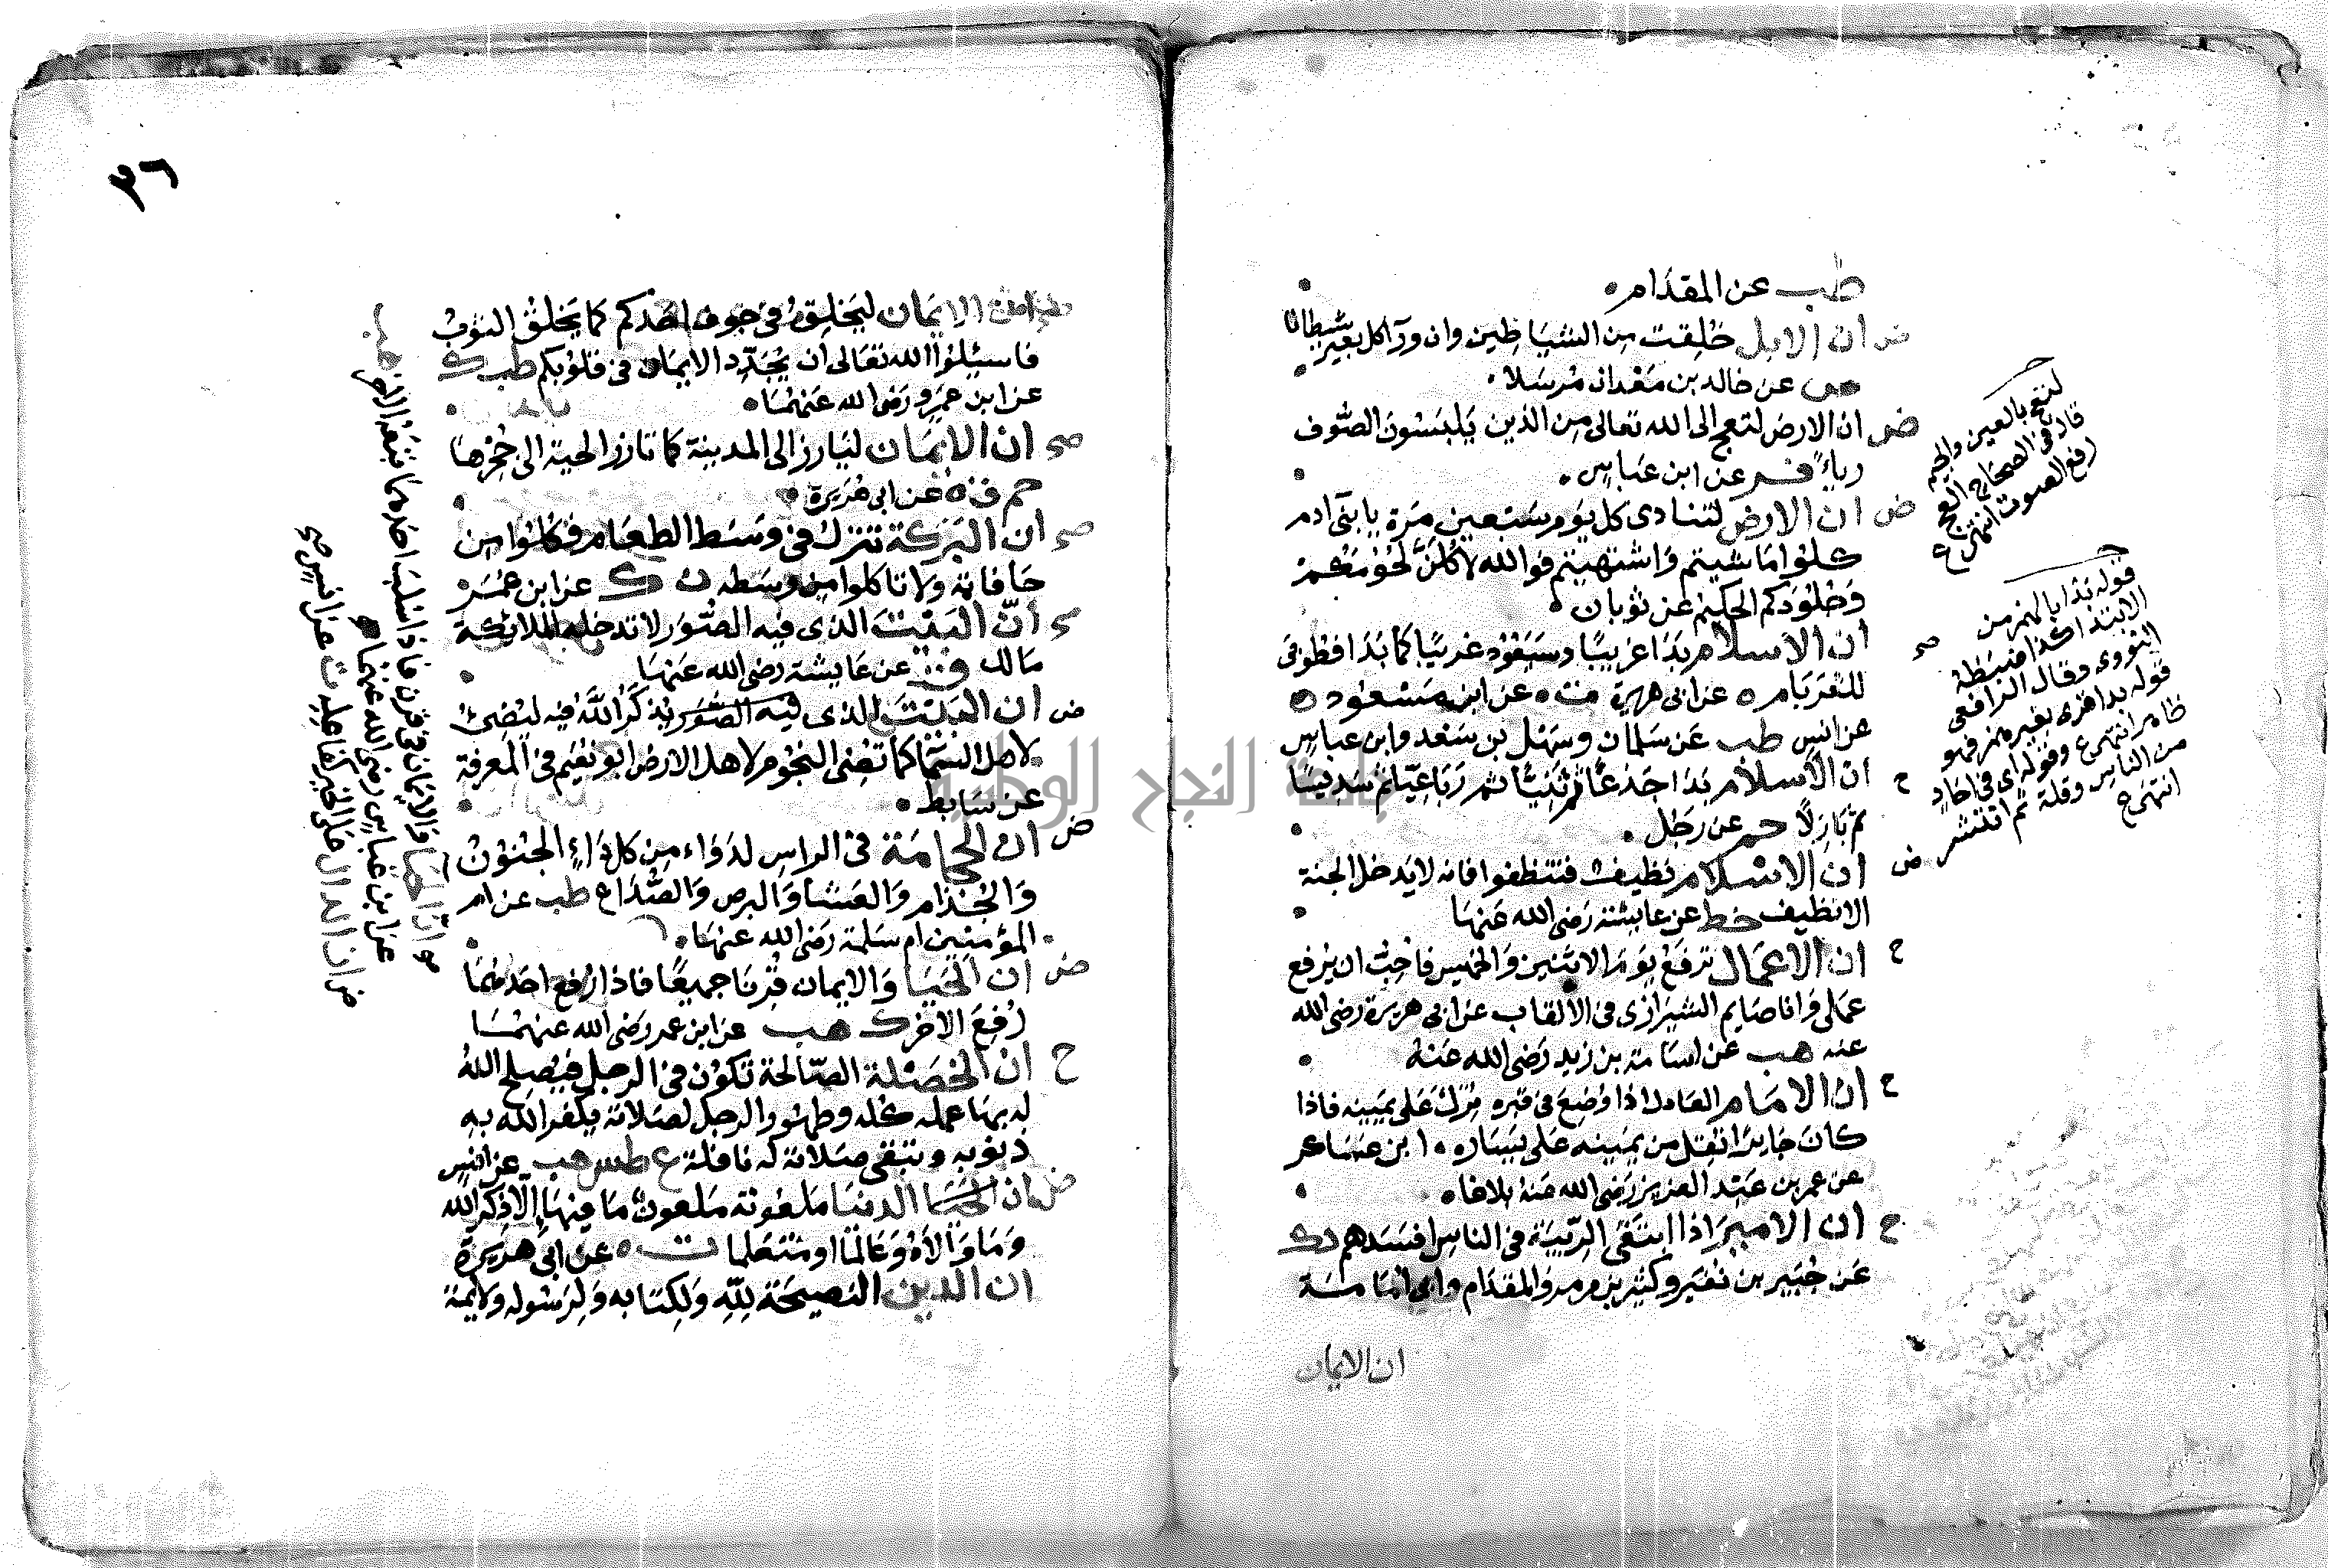 طب عن المقدام
ض ان الابل خلقت من الشياطين وان ورآ كل بعير شيطانا
ص عن خالد بن معدان مرسلا
ض ان الارض لتعج الى الله تعالى من الذين يلبسون الصوف
رياءً فر عن ابن عباس
ض ان الارض لتنادى كل يوم سبعين مرة يا بنى آدم
كلوا ما شيتم واشتهيتم فوالله لاكلن لحومكم
وجلودكم الحكيم عن ثوبان
صح ان الاسلام بدا غريبا وسيعود غريبا كما بدا فطوبى
للغربا م ه عن ابى هريرة ت ه عن ابن مسعود ه
عن انس طب عن سلمان وسهل بن سعد وابن عباس
ح ان الاسلام بدا جذعا ثم ثنيا ثم رباعيا ثم سديسا
ثم بازلا حم عن رجل
ض ان الاسلام نظيف فتنظفوا فانه لا يدخل الجنة
الا نظيف خط عن عايشة رضى الله عنها
ح ان الاعمال ترفع يوم الاثنين والخميس فاحب ان يرفع
عملى وانا صايم الشيرازى فى الالقاب عن ابى هريرة رضى الله
عنه هب عن اسامة بن زيد رضى الله عنه
ح ان الامام العادل اذا وضع فى قبره ترك على يمينه فاذا
كان جايرا نقل من يمينه على يساره ابن عساكر
عن عمر بن عبد العزيز رضى الله عنه بلاغا
ح ان الامير اذا ابتغى الريبة فى الناس افسدهم د ك
عن جبير بن نفير وكثير بن مرة والمقدام وابى امامة
ان الايمان
لتعج بالعين والجيم
قال فى الصحاح العج
رفع الصوت انتهى ع
قوله بدا بالهمز من
الابتدا كذا ضبطه
النووى وقال الرافعى
قوله بدا قرئ بغير همز فهو
ظاهر انتهى ع وقوله اى فى احاد
من الناس وقلة ثم انتشر
انتهى ع
٣٦
ان الايمان ليخلق فى جوف احدكم كما يخلق الثوب
فاسئلوا الله تعالى ان يجدد الايمان فى قلوبكم طب ك
عن ابن عمرو رضى الله عنهما
صح ان الايمان ليارز الى المدينة كما تارز الحية الى جحرها
حم ق ه عن ابى هريرة
صح ان البركة تنزل فى وسط الطعام فكلوا من
حافاته ولا تاكلوا من وسطه ت ك عن ابن عمر
صح ان البيت الذى فيه الصور لا تدخله الملائكة
مالك ق عن عايشة رضى الله عنها
ض ان البيت الذى فيه الصور يذكر الله فيه ليضئ
لاهل السما كما تضئ النجوم لاهل الارض ابو نعيم فى المعرفة
عن سابط
ض ان الحجامة فى الراس لدواء من كل داء الجنون
والجذام والعشا والبرص والصداع طب عن ام
المؤمنين ام سلمة رضى الله عنها
ض ان الحيا والايمان قرنا جميعا فاذا رفع احدهما
رفع الاخر ك هب عن ابن عمر رضى الله عنهما
ح ان الخصلة الصالحة تكون فى الرجل فيصلح الله
له بها عمله كله وطهور الرجل لصلاته يكفر الله به
ذنوبه وتبقى صلاته له نافلة ع طس هب عن انس
ض ان الدنيا ملعونة ملعون ما فيها الا ذكر الله
وما والاه وعالما او متعلما ت ه عن ابى هريرة
ان الدين النصيحة لله ولكتابه ولرسوله ولايمة
ان الحيا والايمان فى قرن فاذا سلب احدهما تبعه الاخر هب
عن ابن عباس رضى الله عنهما
ض ان الدال على الخير كفاعله ت عن انس صح
جامعة النجاح الوطنية